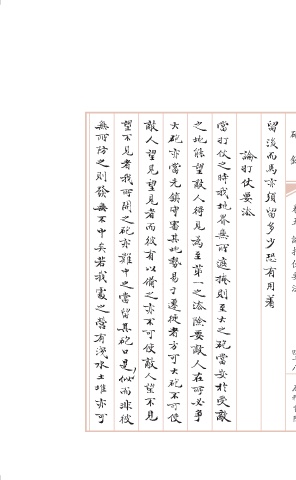 留後而馬亦須留多少恐有用着
論打仗要法
當打仗之時我地界無所遮掩則至大之砲當安於受敵
之地能望敵人得見為至第一之法除要敵人在所必爭
大砲亦當先鎮守審其地勢易于遷徙者方可大砲不可使
敵人望見望見者而彼有以備之亦不可使敵人望不見
望不見者我所開之砲亦難中之當留其砲口是似而非彼
無所防之則發無不中矣若我處之營有淺水土堆亦可